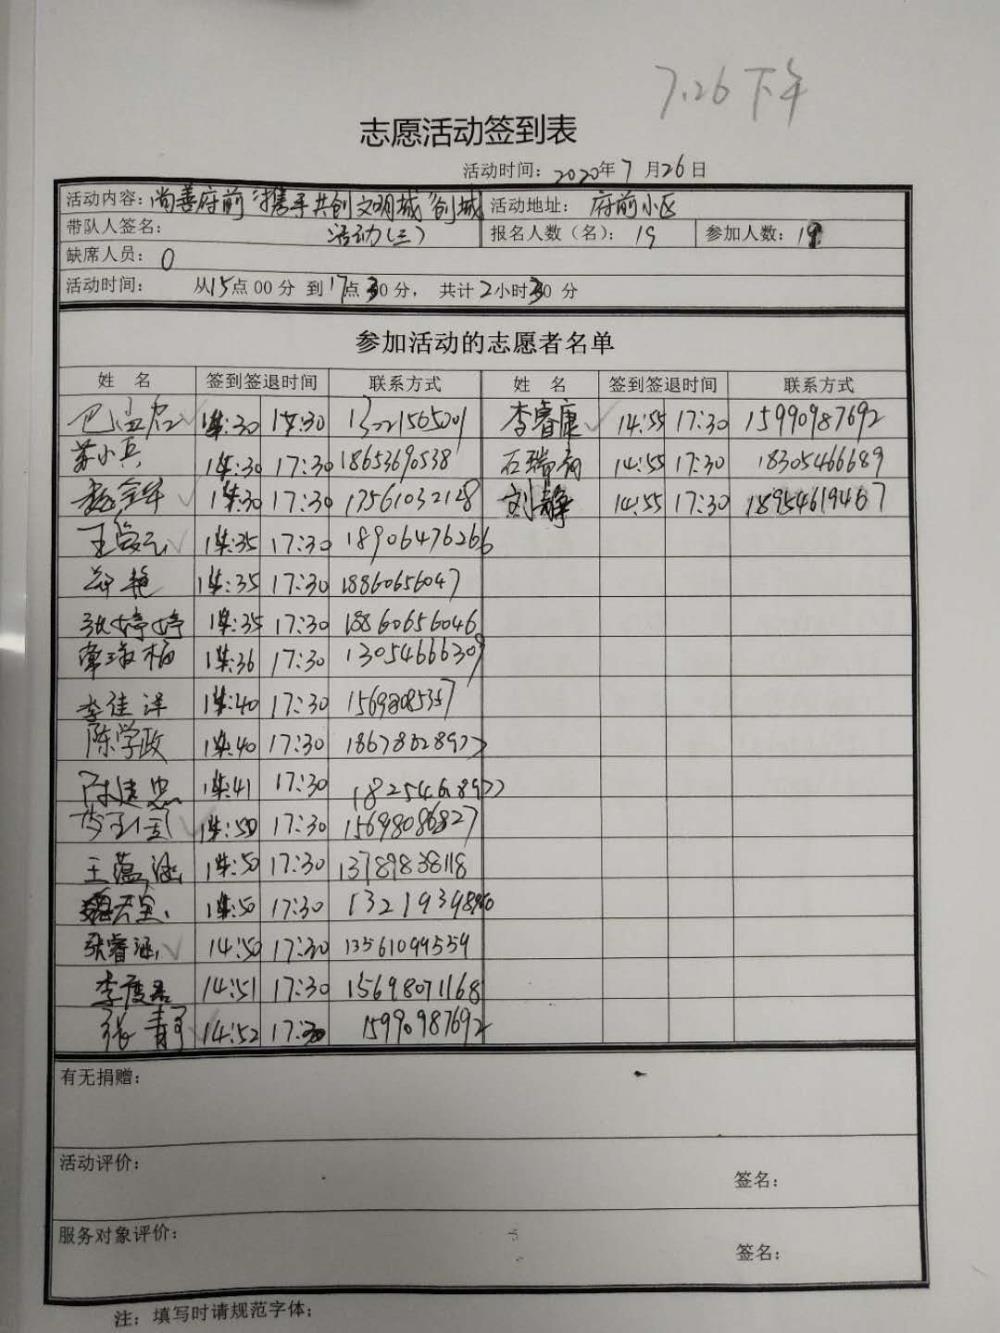 7.26下午
志愿活动签到表
活动时间：2020年7月26日
活动内容：尚善府前“携手共创文明城”创城 活动地址：府前小区
带队人签名： 活动（三） 报名人数（名）：19 参加人数：19
缺席人员：0
活动时间： 从15点00分 到17点30分， 共计2小时30分
参加活动的志愿者名单
姓 名 签到签退时间 联系方式 姓 名 签到签退时间 联系方式
14:30 李睿康 14:55 17:30 15990987692
苏小兵 14:30 17:30 18653690538 石瑞 14:55 17:30 18305466689
14:30 17:30 17561032128 刘静 14:55 17:30 18954619467
14:35 17:30 18906476266
艳 14:35 17:30 18860656047
张婷婷 14:35 17:30 18860656046
14:36 17:30 13054666309
李佳洋 14:40 17:30
陈学政 14:40 17:30
陈建忠 14:41 17:30
14:50 17:30 15698086827
王蕴涵 14:50 17:30 13789838118
14:50 17:30
张睿涵 14:50 17:30 13561099559
李俊君 14:51 17:30 15698071168
张青 14:52 17:30 15990987692
有无捐赠：
活动评价：
签名：
服务对象评价：
签名：
注：填写时请规范字体；